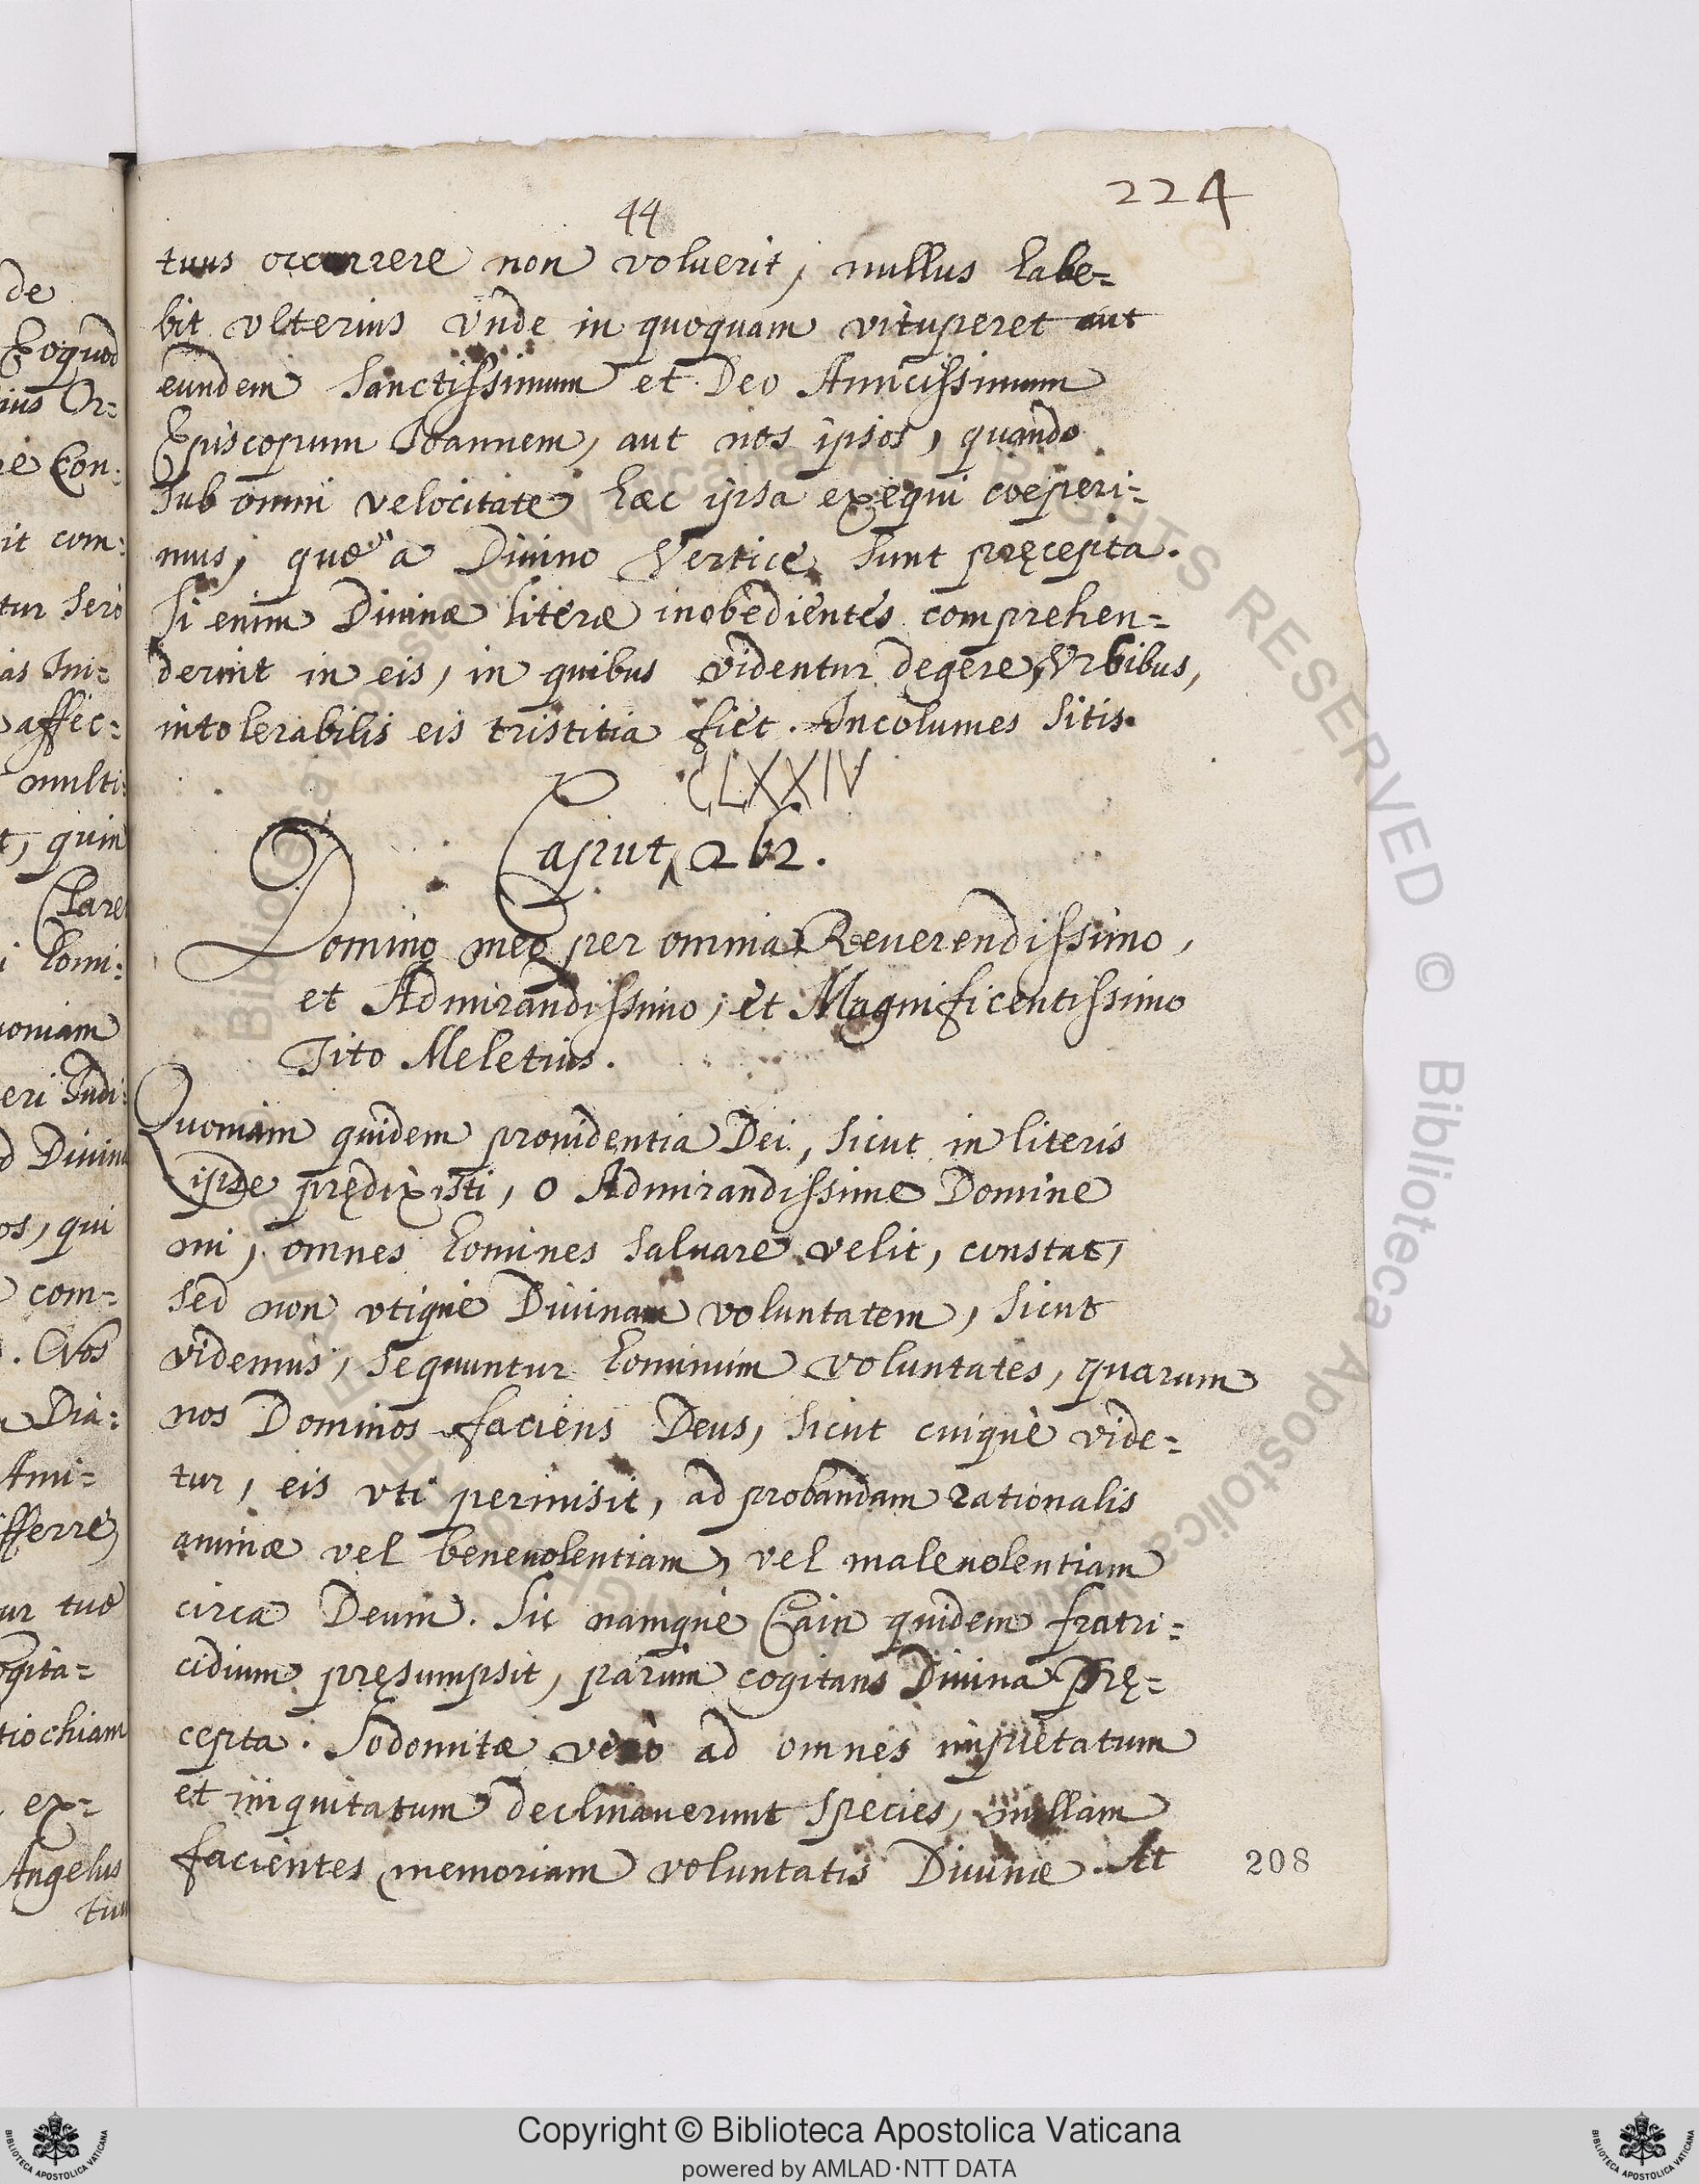 224
44
tuus occurrere non voluerit, nullus habe=
bit vlterius vnde in quoquam vituperet aut
eundem Sanctissimum et Deo Amicissimum
Episcopum Ioannem, aut nos ipsos, quando
sub omni velocitate haec ipsa exequi coeperi=
mus, quae a Diuino Vertice sunt pręcepta.
Si enim Diuinæ literæ inobedientes comprehen=
derint in eis, in quibus videntur degere, Vrbibus,
intolerabilis eis tristitia fiet. Incolumes sitis.
CLXXIV
Caput 262.
Domino meo per omnia Reuerendissimo,
et Admirandissimo, et Magnificentissimo
Tito Meletius.
Quoniam quidem prouidentia Dei, sicut in literis
ipse prędixisti, o Admirandissime Domine
mi, omnes homines saluare velit, constat,
sed non vtique Diuinam voluntatem, sicut
videmus, sequuntur hominum voluntates, quarum
nos Dominos faciens Deus, sicut cuique vide=
tur, eis vti permisit, ad probandam rationalis
animæ vel beneuolentiam, vel maleuolentiam
circa Deum. Sic namque Cain quidem fratri=
cidium pręsumpsit, parum cogitans Diuina Prę=
cepta. Sodomitæ verò ad omnes impietatum
et iniquitatum declinauerunt species, nullam
facientes memoriam voluntatis Diuinæ. At
208
de
Eoquod
ius Or=
re Con=
it com=
tur sero
as Ini=
affec=
multi=
t, quin
Clare
i homi=
uoniam
eri Iudi=
d Diuina
os, qui
com=
. Nos
Dia=
Ami=
fferre
ur tuæ
ogita=
tiochiam
ex=
Angelus
tuus
Copyright © Biblioteca Apostolica Vaticana
powered by AMLAD·NTT DATA